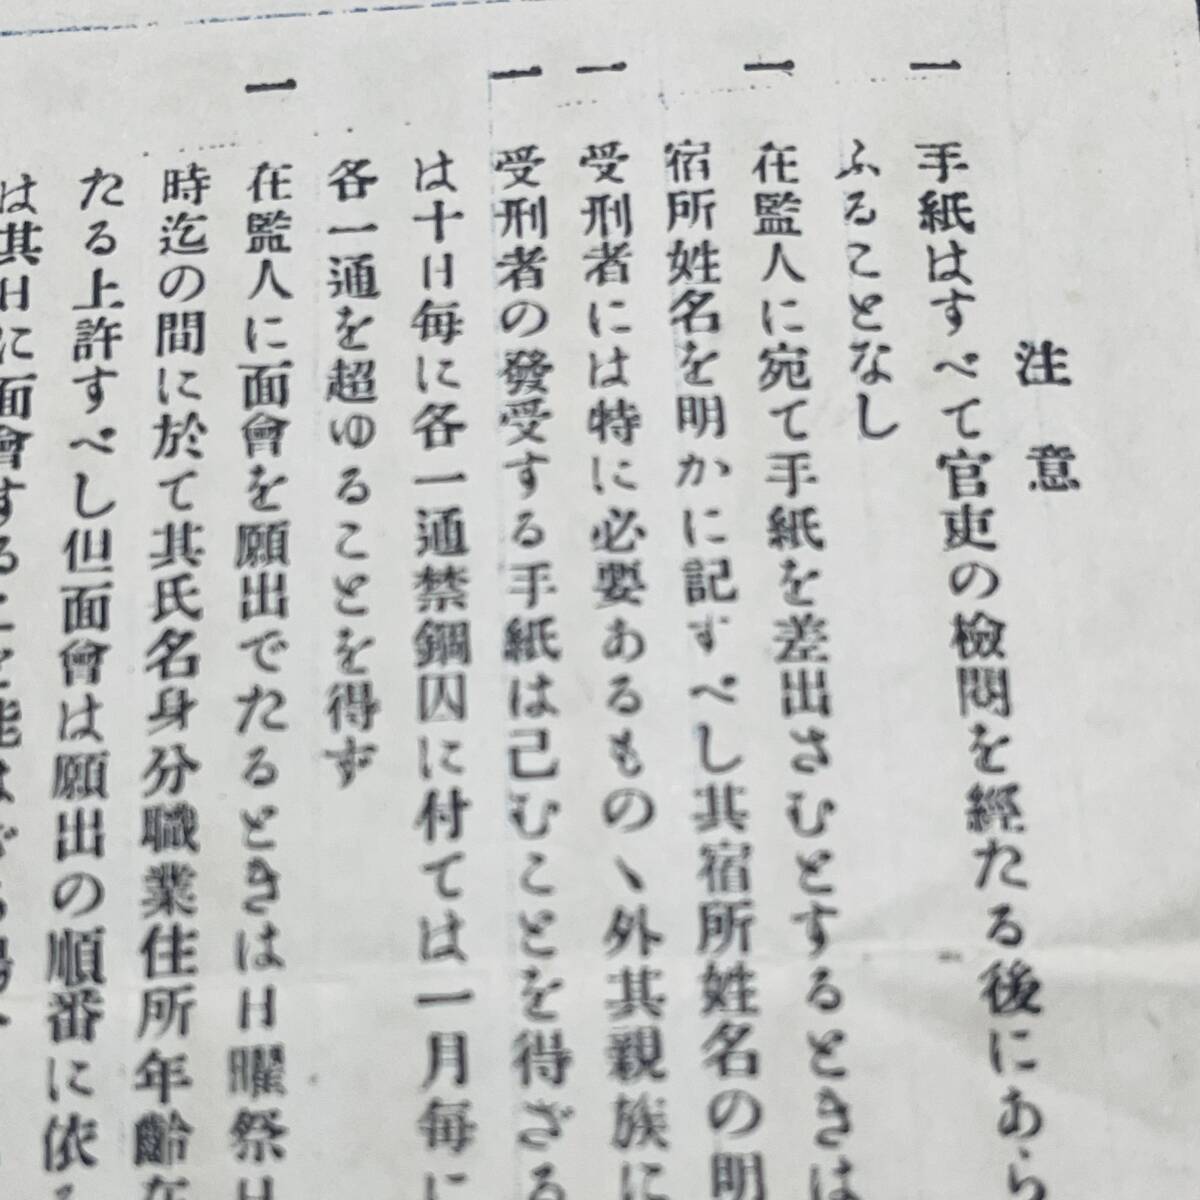 注意
一 手紙はすべて官吏の檢閲を經たる後にあら
ふることなし
一 在監人に宛て手紙を差出さむとするときは
宿所姓名を明かに記すべし其宿所姓名の明
一 受刑者には特に必要あるものヽ外其親族に
一 受刑者の發受する手紙は已むことを得ざる
は十日毎に各一通禁錮囚に付ては一月毎に
各一通を超ゆることを得ず
一 在監人に面會を願出でたるときは日曜祭日
時迄の間に於て其氏名身分職業住所年齡在
たる上許すべし但面會は願出の順番に依る
は其日に面會することを能はざる